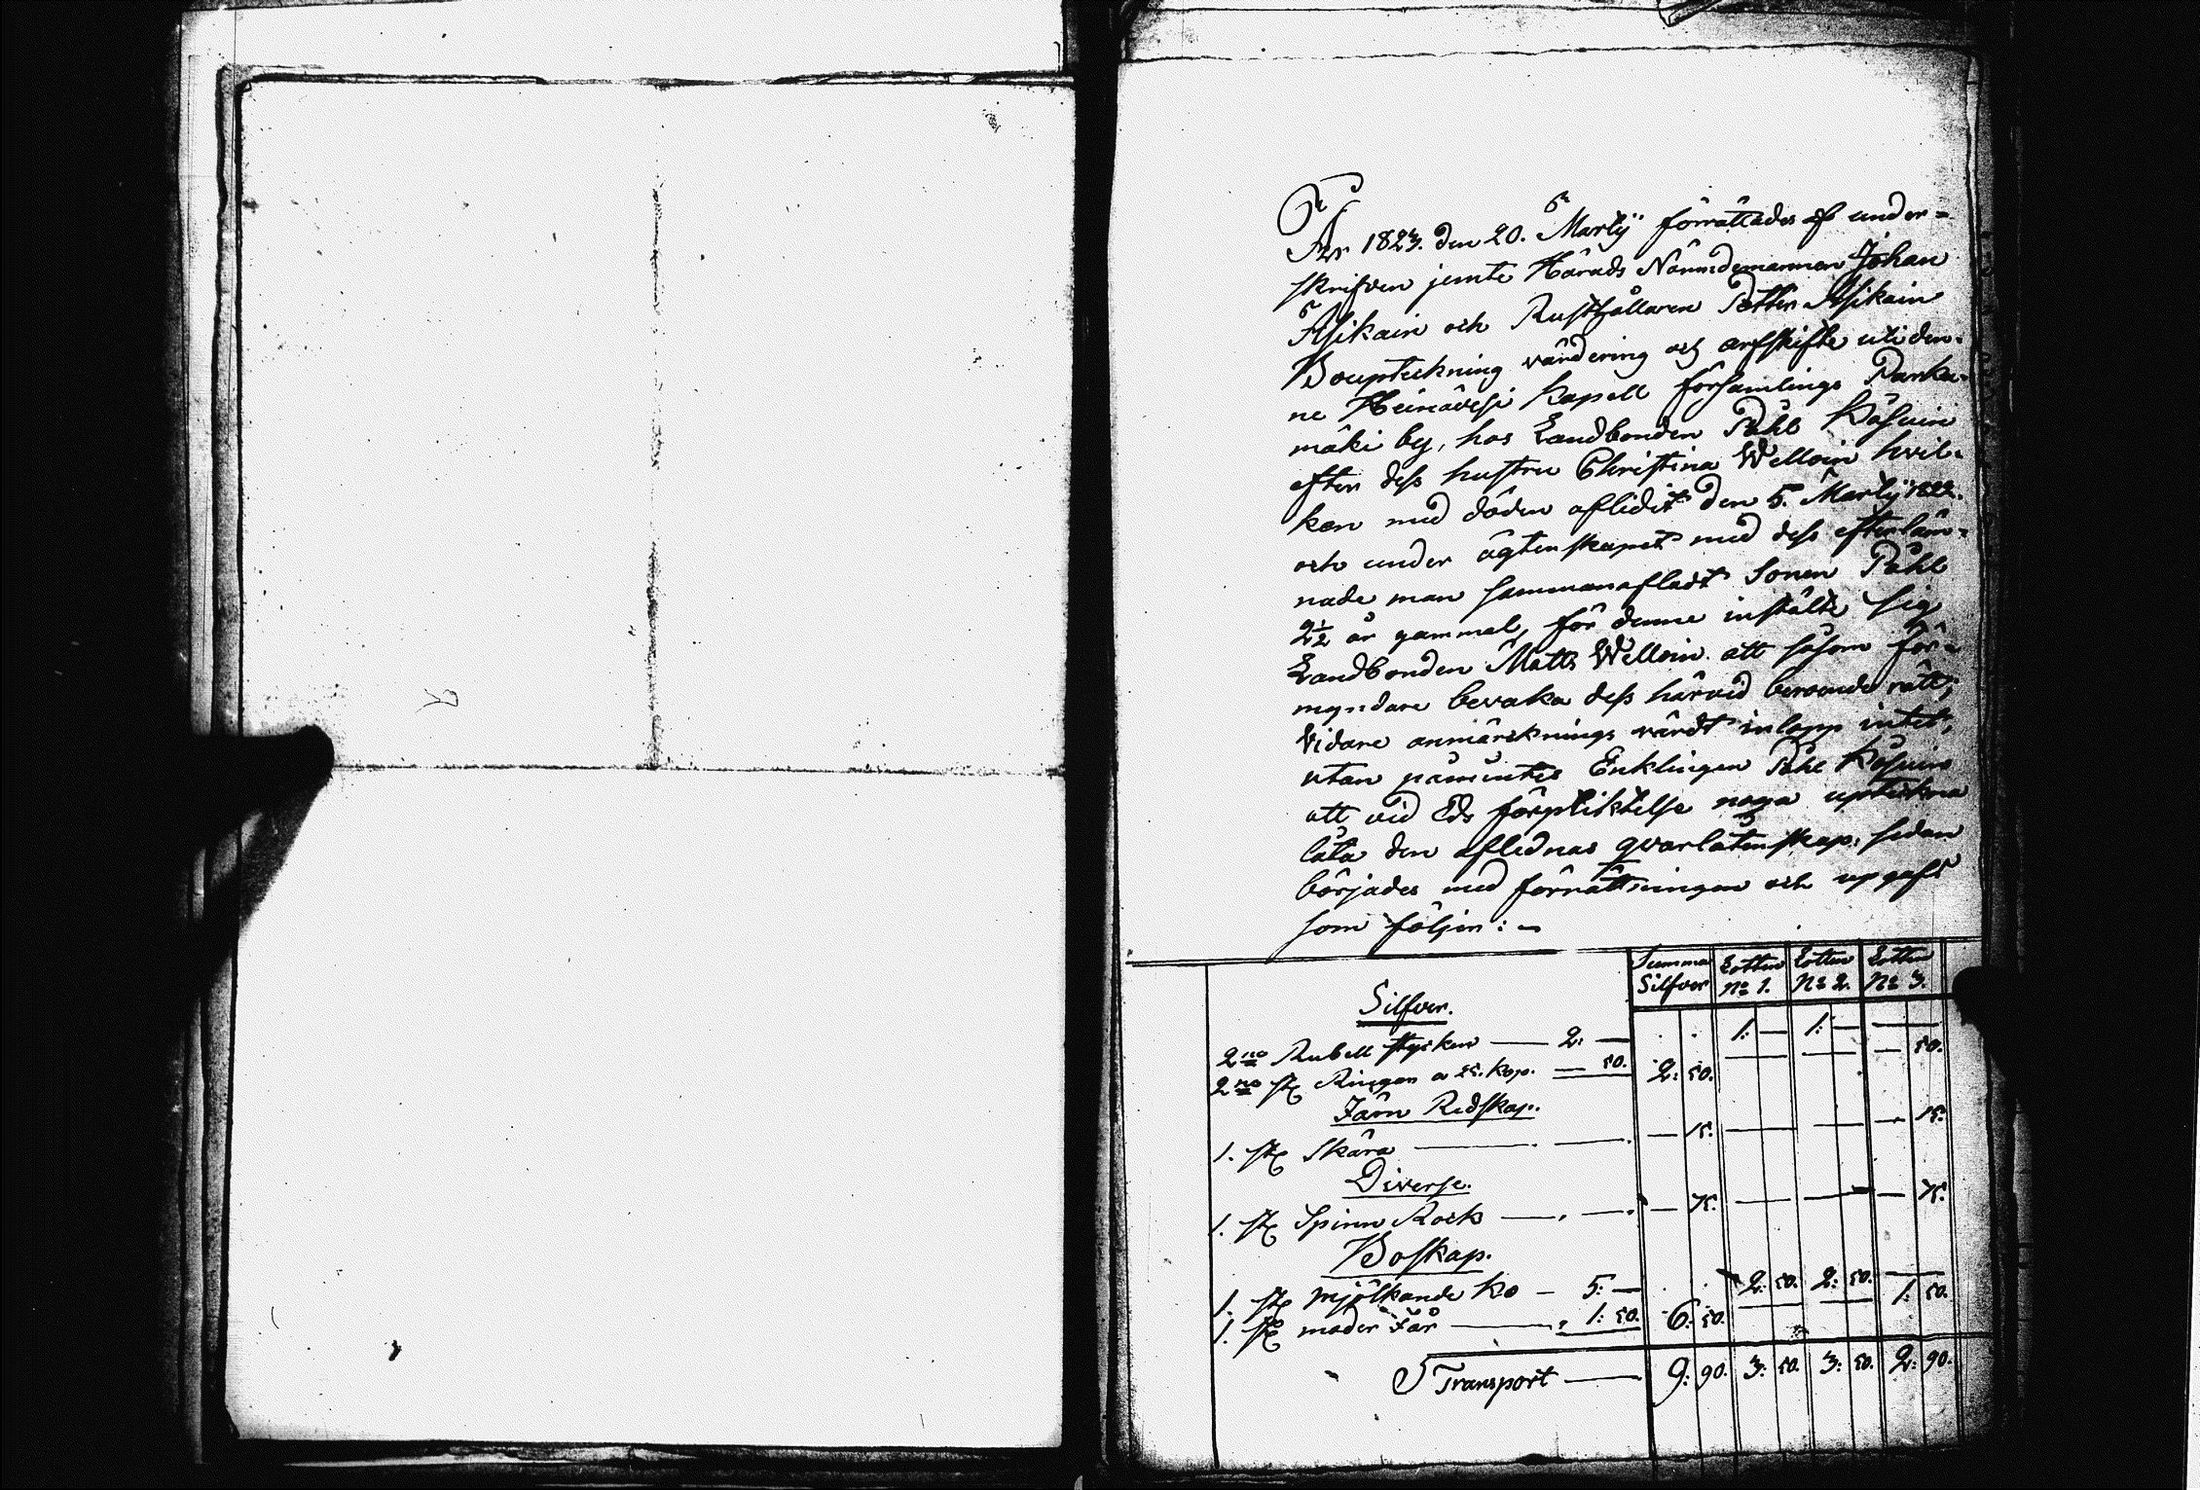 År 1823. den 20. Martij förrättades af under-
skrifven jemte Härads Nämndemannen Johan
Asikain och Rusthållaren Petter Asikain
Bouptekning värdering och arfskifte uti den-
ne Heinävesi Kapell församlings Parka-
mäki by, hos Landbonden Påhl Käsuin
efter dess hustru Christina Welloin hvil-
ken med döden aflidit den 5. Martij 1822.
och under ägtenskapet med dess efterläm-
nade man sammanaflat Sonen Påhl
2½ år gammal, för denne inställte sig
Landbonden Matts Welloin att såsom för-
myndare bevaka dess härvid beroende rätt;
Vidare anmärknings värdt inlopp intet,
utan påmintes Enklingen Påhl Käsuin
att vid Eds förpliktelse noga uptekna
låta den aflednas qvarlåtenskap: sedan
börjades med förrättningen och upgafs
som följer: -
Summa Silfver Lotten No 1. Lotten No 2. Lotten No 3.
Silfver.
2ne Rubell stycken — 2: — 1: — 1: — —
2ne st Ringar a 25. Kop. — 50. 2: 50. — — — 50.
Järn Redskap.
1. st Skära — — 15. — — — 15.
Diverse.
1. st Spinn Rock — — 75. — — — 75.
Boskap.
1. st mjölkande Ko — 5: — 2: 50. 2: 50. —
1. st moder Får — 1: 50. 6: 50. — — 1: 50.
Transport — 9: 90. 3: 50. 3: 50. 2: 90.